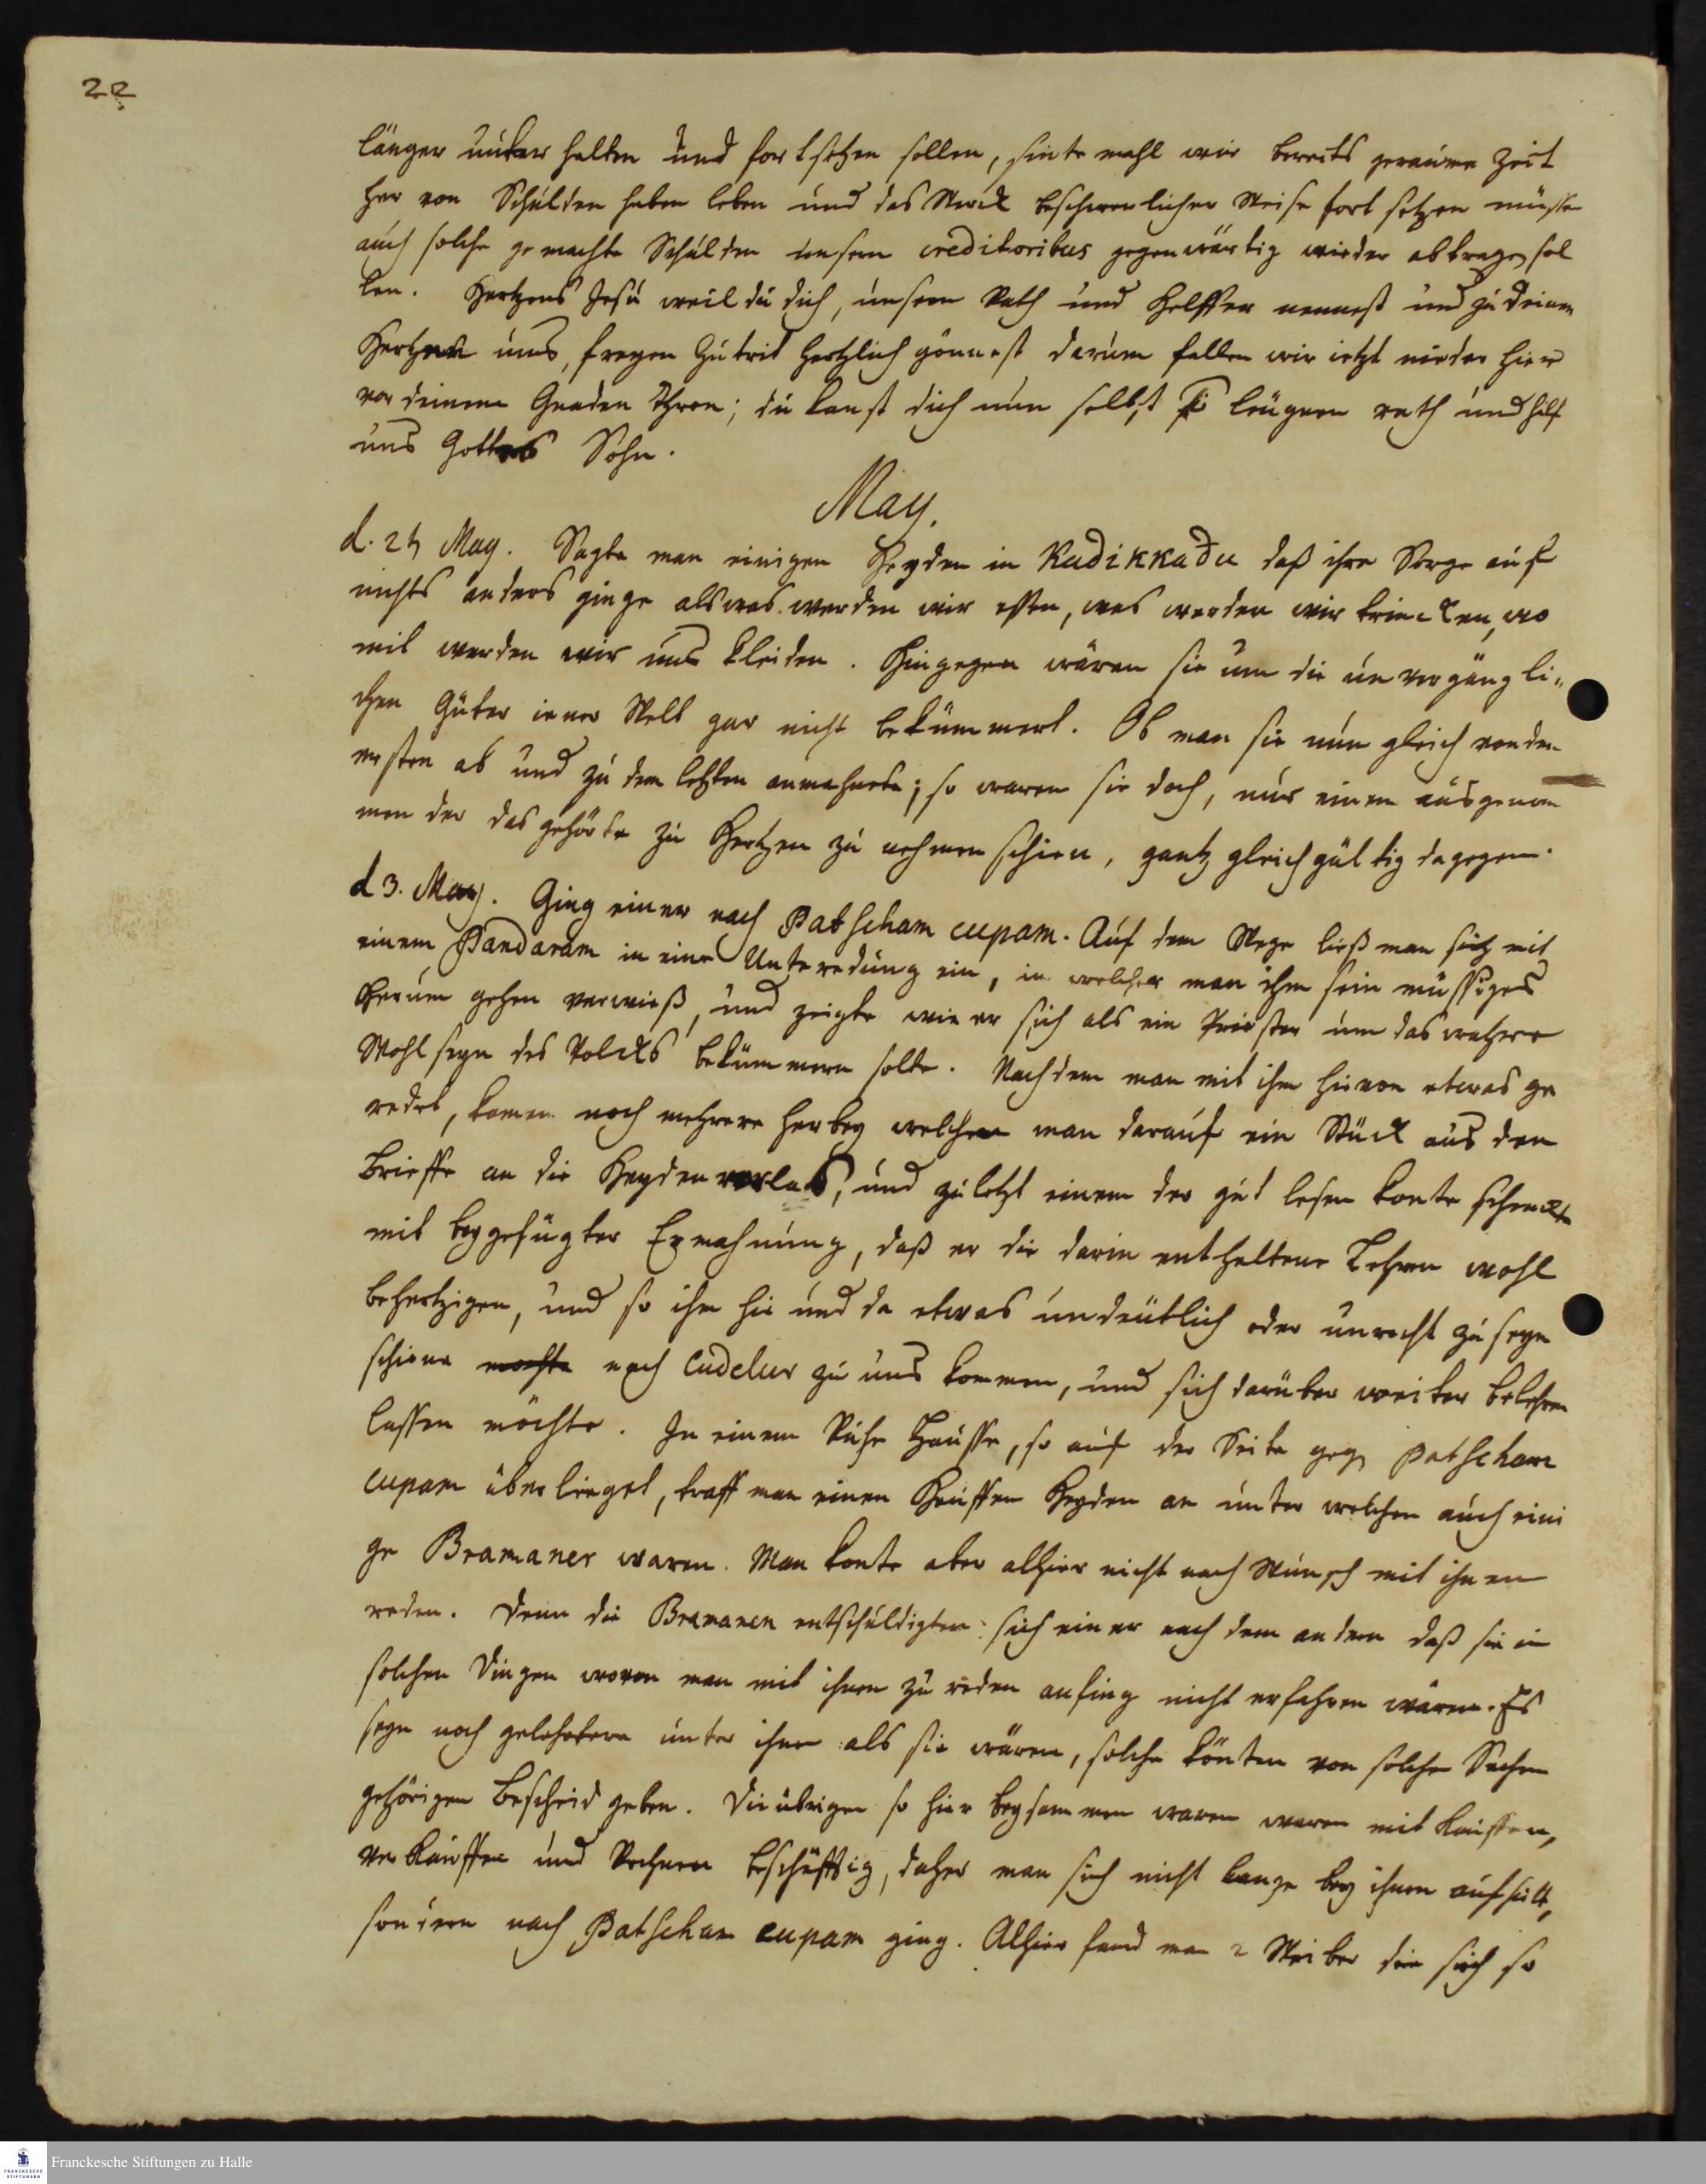 22
länger unter halten und fort setzen sollen, sinte mahl wir bereits geraume Zeit
her von Schulden haben leben und das Werck beschwerlicher Weise fort setzen müssen
auch solche ge machte Schulden unsern creditoribus gegenwärtig wieder abtragen sol
len. Hertzens Jesu weil du dich, unsern Rath und Helffer nennest und zu deinem
Hertzen uns, freyen Zutrit hertzlich gönnest darum fallen wir ietzt nieder hier
vor deinem Gnaden Thron; du kanst dich nun selbst leugnen rath und hilf
uns Gottes Sohn.
May.
d. 2t May. Sagte man einigen Heyden in Kudikkadu daß ihre Sorge auf
nichts anders ginge als was werden wir essen, was werden wir trincken, wo
mit werden wir uns kleiden. Hingegen wären sie um die un vergängli„
chen Güter iener Welt gar nicht bekümmert. Ob man sie nun gleich von den
ersten ab und zu dem letzten anmahnete; so waren sie doch, nur einen ausgenom
men der das gehörte zu Hertzen zu nehmen schien, gantz gleich gültig dagegen.
d 3. May. Ging einer nach Patscham cupam. Auf dem Wege ließ man sich mit
einem Pandaram in eine Unterredung ein, in welcher man ihm sein müssiges
Herum gehen verwieß, und zeigte wie er sich als ein Priester um das wahre
Wohl seyn des Volcks bekümmern solte. Nachdem man mit ihm hievon etwas ge
redet, kamen noch mehrere herbey welchen man darauf ein Stück aus dem
Brieffe an die Heyden vorlas, und zuletzt einem der gut lesen konte schenckte
mit beygefügter Ermahnung, daß er die darin enthaltene Lehren wohl
behertzigen, und so ihm hie und da etwas undeutlich oder unrecht zu seyn
schiene mochte nach Cudelur zu uns kommen, und sich darüber weiter belehren
lassen möchte. In einem Ruhe Hausse, so auf der Seite gegen Patscham
cupam über lieget, traff man einen Hauffen Heyden an unter welchen auch eini
ge Bramaner waren. Man konte aber alhier nicht nach Wunsch mit ihnen
reden. Denn die Bramanen entschuldigten sich einer nach dem andern daß sie in
solchen Dingen wovon man mit ihnen zu reden anfing nicht erfahren wären. Es
seyn noch gelehrtere unter ihnen als sie wären, solche könten von solchen Sachen
gehörigen Bescheid geben. Die übrigen so hier beysammen waren waren mit Kauffen,
ver kauffen und Rechnen beschäfftig, daher man sich nicht lange bey ihnen aufhielt,
sondern nach Patscham cupam ging. Alhier fand man 2 Weiber die sich so
Franckesche Stiftungen zu Halle